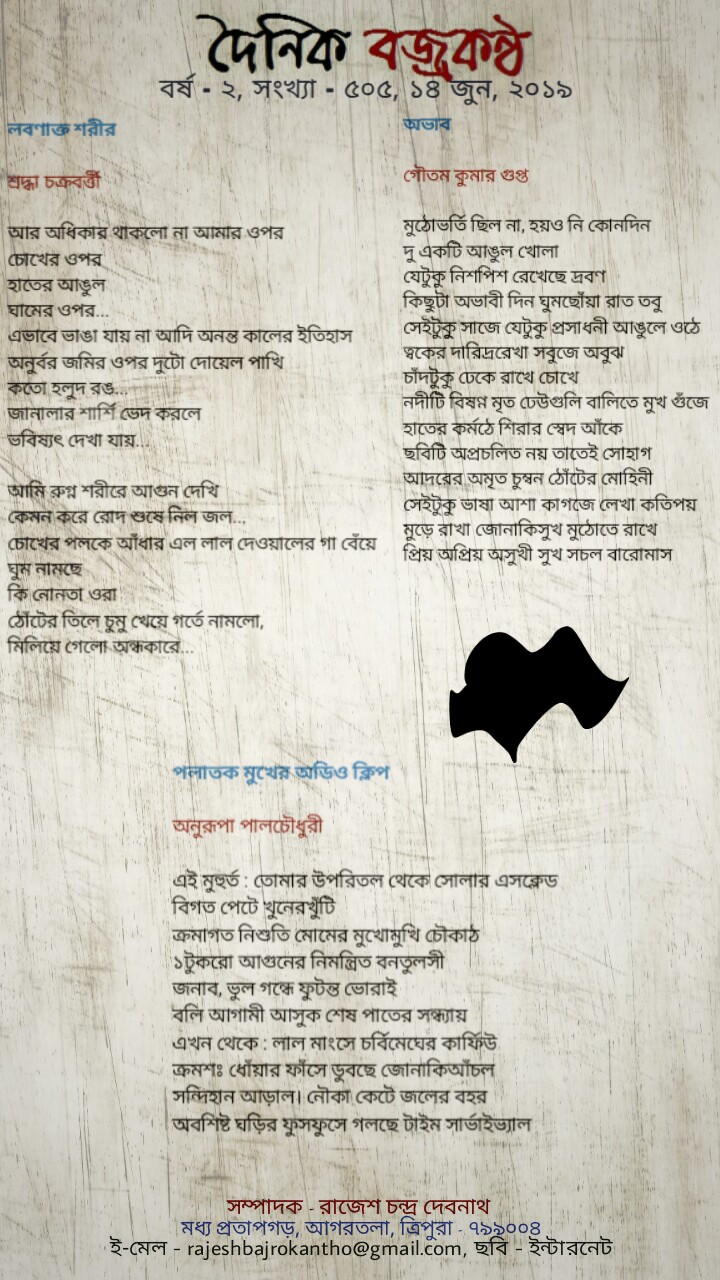 দৈনিক বজ্রকন্ঠ
বর্ষ - ২, সংখ্যা - ৫০৫, ১৪ জুন, ২০১৯
লবণাক্ত শরীর
শ্রদ্ধা চক্রবর্ত্তী
আর অধিকার থাকলো না আমার ওপর
চোখের ওপর
হাতের আঙুল
ঘামের ওপর...
এভাবে ভাঙা যায় না আদি অনন্ত কালের ইতিহাস
অনুর্বর জমির ওপর দুটো দোয়েল পাখি
কতো হলুদ রঙ...
জানালার শার্শি ভেদ করলে
ভবিষ্যৎ দেখা যায়...
আমি রুগ্ন শরীরে আগুন দেখি
কেমন করে রোদ শুষে নিল জল...
চোখের পলকে আঁধার এল লাল দেওয়ালের গা বেঁয়ে
ঘুম নামছে
কি নোনতা ওরা
ঠোঁটের তিলে চুমু খেয়ে গর্তে নামলো,
মিলিয়ে গেলো অন্ধকারে...
অভাব
গৌতম কুমার গুপ্ত
মুঠোভর্তি ছিল না, হয়ও নি কোনদিন
দু একটি আঙুল খোলা
যেটুকু নিশপিশ রেখেছে দ্রবণ
কিছুটা অভাবী দিন ঘুমছোঁয়া রাত তবু
সেইটুকু সাজে যেটুকু প্রসাধনী আঙুলে ওঠে
ত্বকের দারিদ্ররেখা সবুজে অবুঝ
চাঁদটুকু ঢেকে রাখে চোখে
নদীটি বিষণ্ন মৃত ঢেউগুলি বালিতে মুখ গুঁজে
হাতের কর্মঠে শিরার স্বেদ আঁকে
ছবিটি অপ্রচলিত নয় তাতেই সোহাগ
আদরের অমৃত চুম্বন ঠোঁটের মোহিনী
সেইটুকু ভাষা আশা কাগজে লেখা কতিপয়
মুড়ে রাখা জোনাকিসুখ মুঠোতে রাখে
প্রিয় অপ্রিয় অসুখী সুখ সচল বারোমাস
পলাতক মুখের অডিও ক্লিপ
অনুরূপা পালচৌধুরী
এই মুহুর্ত : তোমার উপরিতল থেকে সোলার এসব্লেড
বিগত পেটে খুনেরখুঁটি
ক্রমাগত নিশুতি মোমের মুখোমুখি চৌকাঠ
১টুকরো আগুনের নিমন্ত্রিত বনতুলসী
জনাব, ভুল গন্ধে ফুটন্ত ভোরাই
বলি আগামী আসুক শেষ পাতের সন্ধ্যায়
এখন থেকে : লাল মাংসে চর্বিমেঘের কার্ফিউ
ক্রমশঃ ধোঁয়ার ফাঁসে ডুবছে জোনাকিআঁচল
সন্দিহান আড়াল। নৌকা কেটে জলের বহর
অবশিষ্ট ঘড়ির ফুসফুসে গলছে টাইম সার্ভাইভ্যাল
সম্পাদক - রাজেশ চন্দ্র দেবনাথ
মধ্য প্রতাপগড়, আগরতলা, ত্রিপুরা - ৭৯৯০০৪
ই-মেল - rajeshbajrokantho@gmail.com, ছবি - ইন্টারনেট